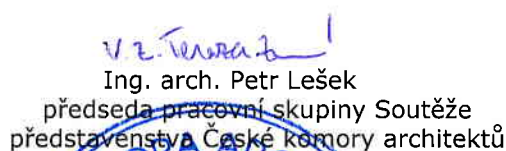 v.z. Tereza
Ing. arch. Petr Lešek
předseda pracovní skupiny Soutěže
představenstva České komory architektů